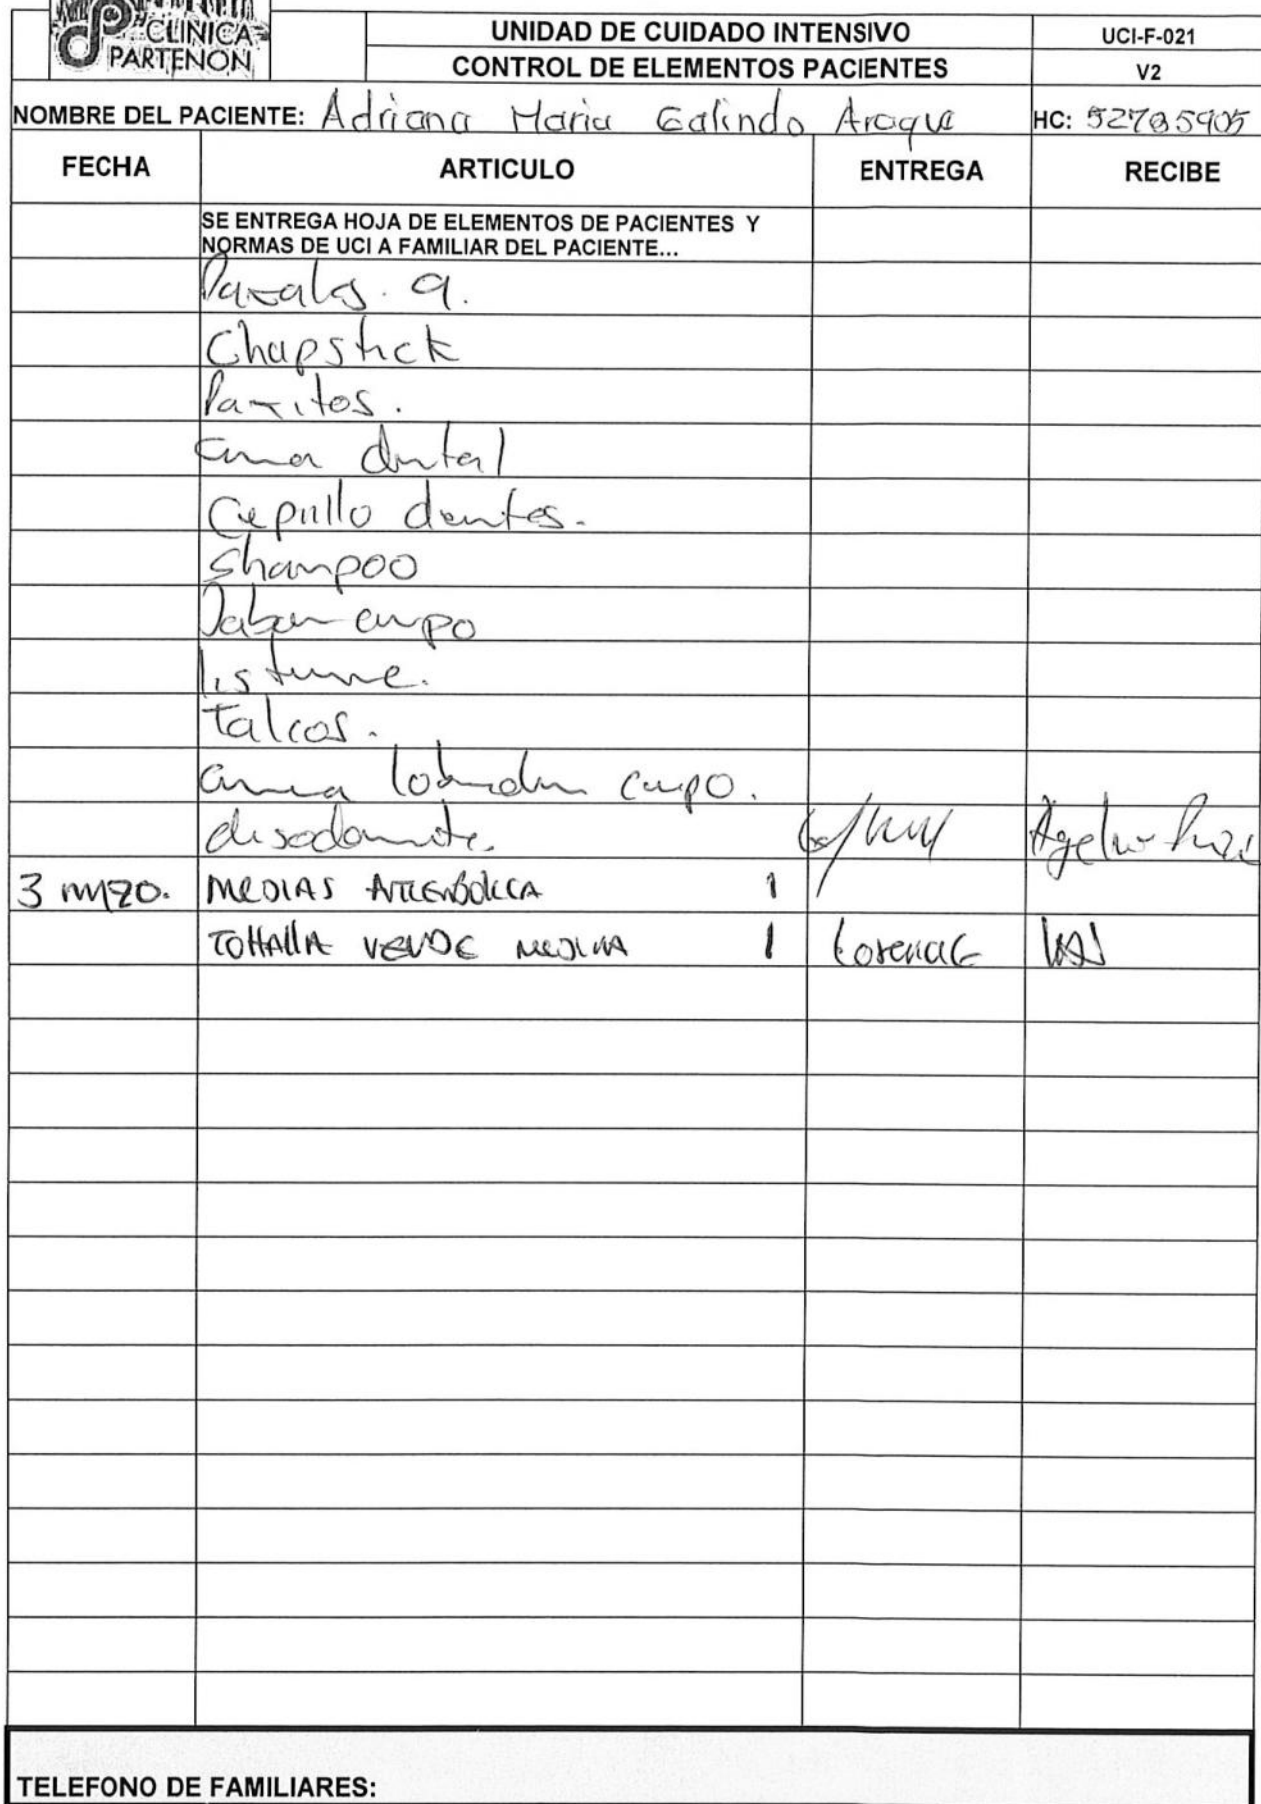 CLINICA
PARTENON
UNIDAD DE CUIDADO INTENSIVO
UCI-F-021
CONTROL DE ELEMENTOS PACIENTES
V2
NOMBRE DEL PACIENTE: Adriana Maria Galindo Araque HC: 52785905
FECHA ARTICULO ENTREGA RECIBE
SE ENTREGA HOJA DE ELEMENTOS DE PACIENTES Y
NORMAS DE UCI A FAMILIAR DEL PACIENTE...
9.
Chapstick
Pañitos.
crema dental
Cepillo dientes.
Shampoo
Jabon cuerpo
listerine.
Talcos.
crema cuerpo.
desodorante.
3 MEDIAS 1
TOHALLA VERDE 1 Lorena
TELEFONO DE FAMILIARES: